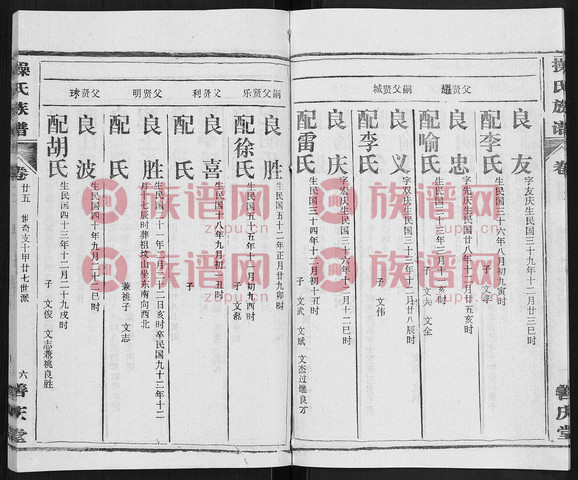 操氏族谱
卷
善庆堂
父贤
良友
字友庆生民国三十九年十二月廿三巳时
配李氏
生民国三十六年八月初九寅时
子 文李
良忠
字先庆生民国廿八年十二月廿五亥时
配喻氏
生民国三十三年三月十二亥时
子 文兴 文全
嗣父贤城
良义
字双庆生民国三十三年十二月廿八辰时
配李氏
子 文伟
良庆
字宏庆生民国三十六年十二月十二巳时
配雷氏
生民国三十四年十二月初十丑时
子 文武 文斌 文杰过继良才
嗣父贤乐
良胜
生民国五十二年正月廿九卯时
配徐氏
生民国五十五年十二月初九酉时
子 文磊
父贤利
良喜
生民国十八年九月初一丑时
配氏
子
父贤明
良胜
生民国十一年二月二十二日亥时卒民国九十三年十二
月十七辰时葬祖坟山坐东南向西北
配氏
兼祧子 文志
父贤球
良波
生民国四十九年九月二十二巳时
配胡氏
生民国四十三年十二月二十九戌时
子 文俊 文志兼祧良胜
操氏族谱
卷
廿五 世奇支十甲廿七世派
六
善庆堂
族谱网
zupu.cn
族谱网
zupu.cn
族谱网
zupu.cn